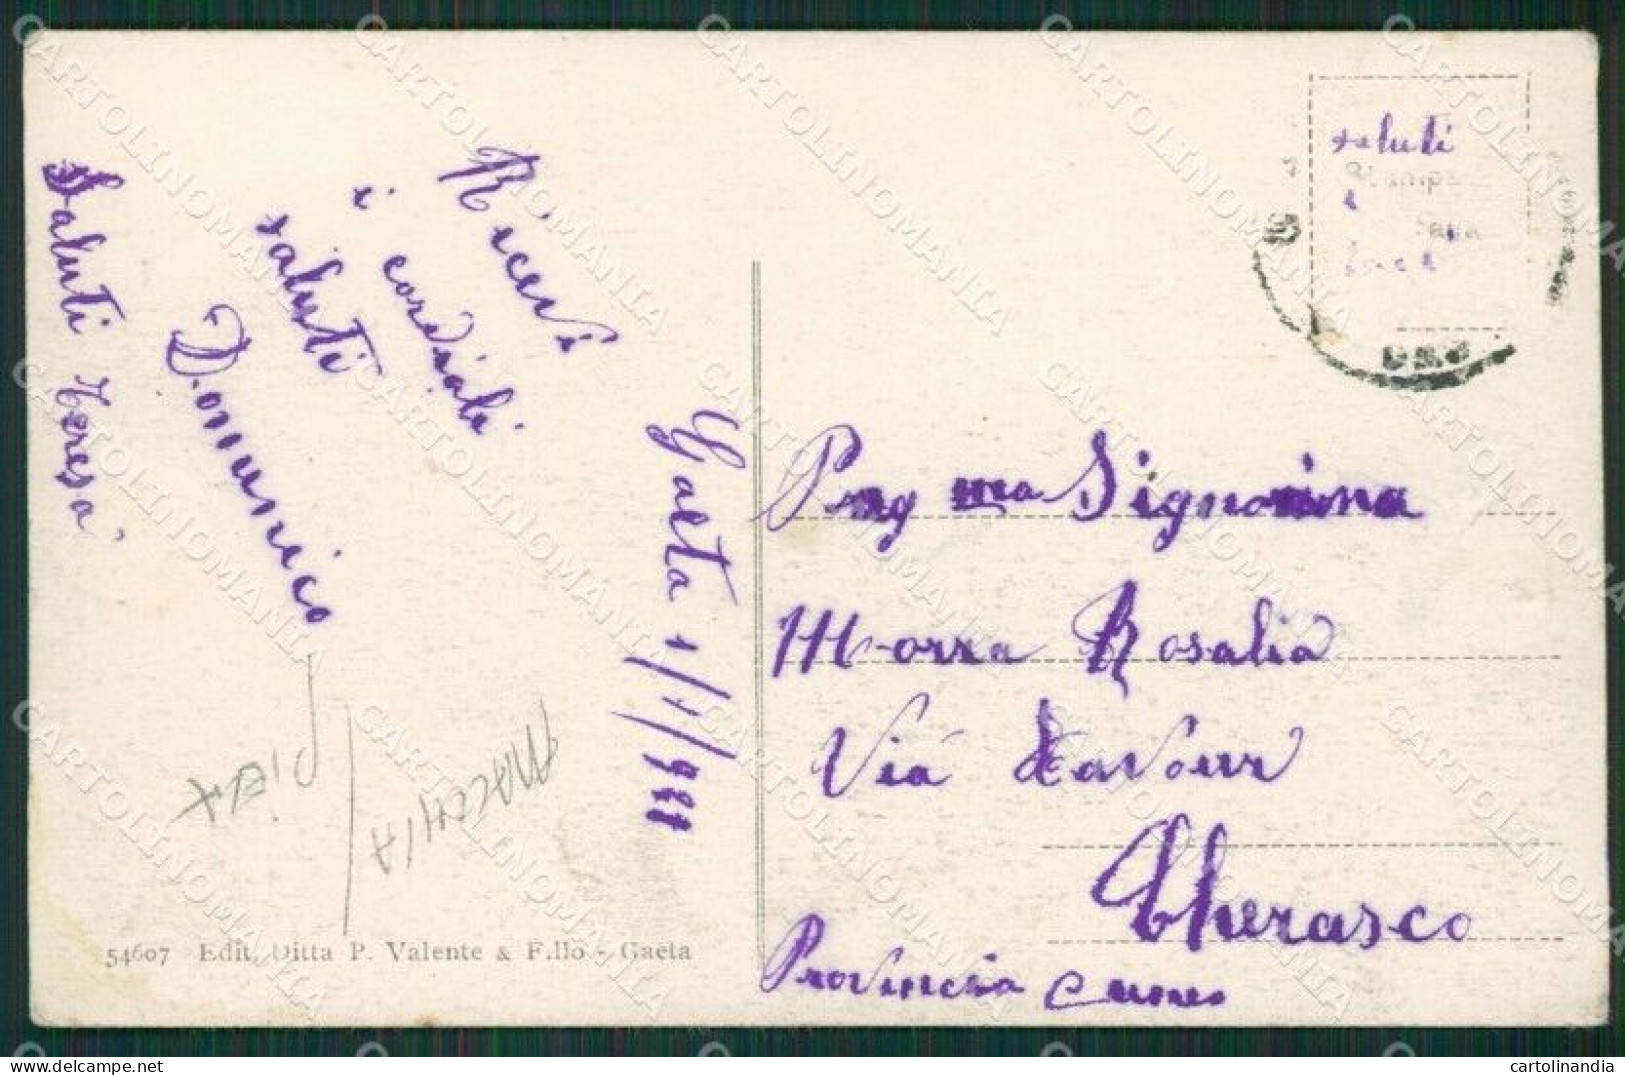 Ricevi
i cordiali
saluti
Domenico
Saluti Teresa
Gaeta 1/1/1921
saluti
e
baci
Preg ma Signorina
Morra Rosalia
Via Cavour
Cherasco
Provincia Cuneo
MACCHIA
PIEGA
54607 Edit. Ditta P. Valente & F.llo - Gaeta
CARTOLINOMANIA
cartolinandia